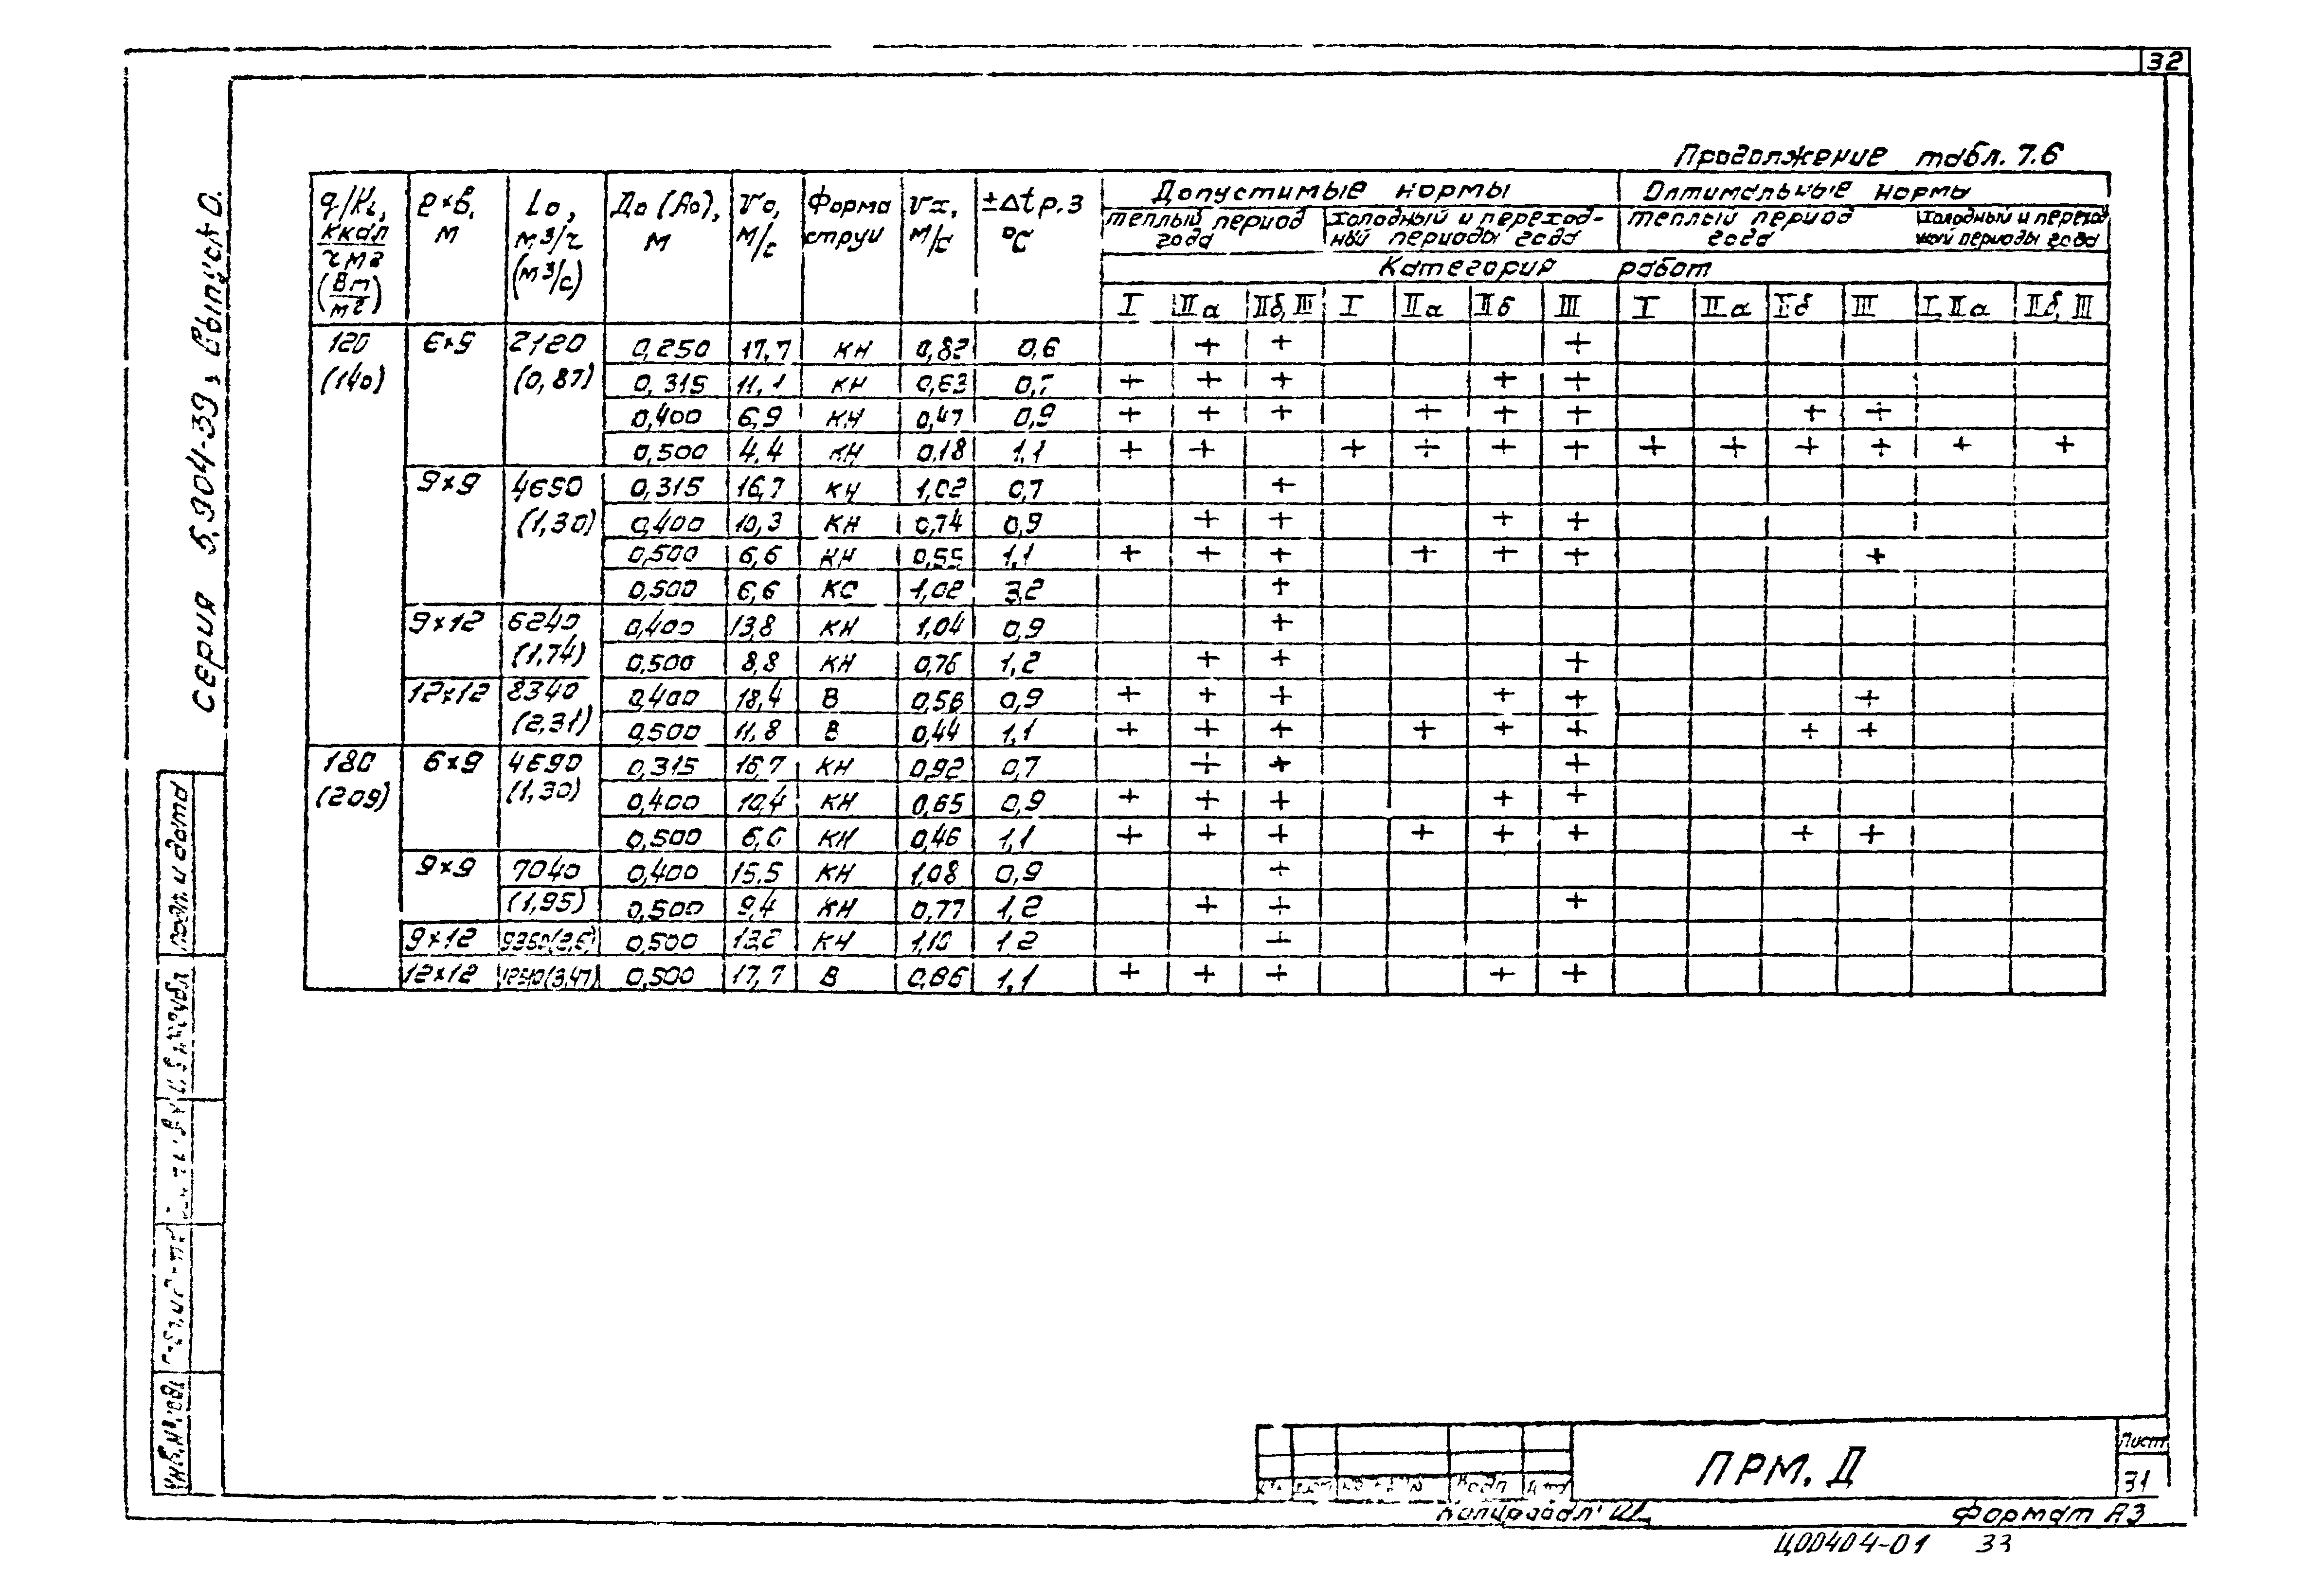 32
Продолжение табл. 7.6
q/КL, ккал/чм² (Вт/м²) ℓ×в, м Lо, м³/ч (м³/с) До (Ао), м Vо, м/с Форма струи Vх, м/с ±Δtр.з °С Допустимые нормы Оптимальные нормы
теплый период года холодный и переходный периоды года теплый период года холодный и переходной периоды года
Категория работ
I IIа IIб, III I IIа IIб III I IIа Iб III I, IIа IIб, III
120 6×9 2120 0,250 17,7 КН 0,82 0,6 + + +
(140) (0,87) 0,315 11,1 КН 0,63 0,7 + + + + +
0,400 6,9 КН 0,47 0,9 + + + + + + + +
0,500 4,4 КН 0,18 1,1 + + + + + + + + + + + +
9×9 4690 0,315 16,7 КН 1,02 0,7 +
(1,30) 0,400 10,3 КН 0,74 0,9 + + + +
0,500 6,6 КН 0,55 1,1 + + + + + + +
0,500 6,6 КС 1,02 3,2 +
9×12 6240 0,400 13,8 КН 1,04 0,9 +
(1,74) 0,500 8,8 КН 0,76 1,2 + + +
12×12 8340 0,400 18,4 В 0,56 0,9 + + + + + +
(2,31) 0,500 11,8 В 0,44 1,1 + + + + + + + +
180 6×9 4690 0,315 16,7 КН 0,92 0,7 + + +
(209) (1,30) 0,400 10,4 КН 0,65 0,9 + + + + +
0,500 6,6 КН 0,46 1,1 + + + + + + + +
9×9 7040 0,400 15,5 КН 1,08 0,9 +
(1,95) 0,500 9,4 КН 0,77 1,2 + + +
9×12 9360(2,6) 0,500 13,2 КН 1,10 1,2 +
12×12 (3,47) 0,500 17,7 В 0,86 1,1 + + + + +
Серия 5.904-39, выпуск 0.
подп. и дата
Инв.№
ПРМ. Д
Лист
31
Копировал
Формат А3
Ц00404-01 33